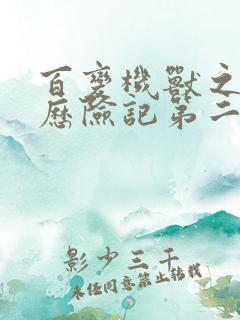 百变機獸之
歷險記第二
影少三千
未经同意禁止转载